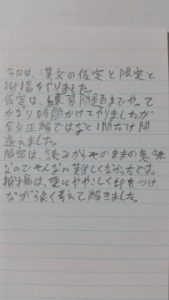 今日は、漢文の仮定と限定と
抑揚をやりました。
仮定は、練習問題までやって
かなり時間かけてやりましたが
全文正解ではなく1問だけ間
違えました。
限定は、読みからそのままの意味
なのでそんなに難しくなかったです。
抑揚は、ややこしく印をつけ
ながら良く考えて解きました。